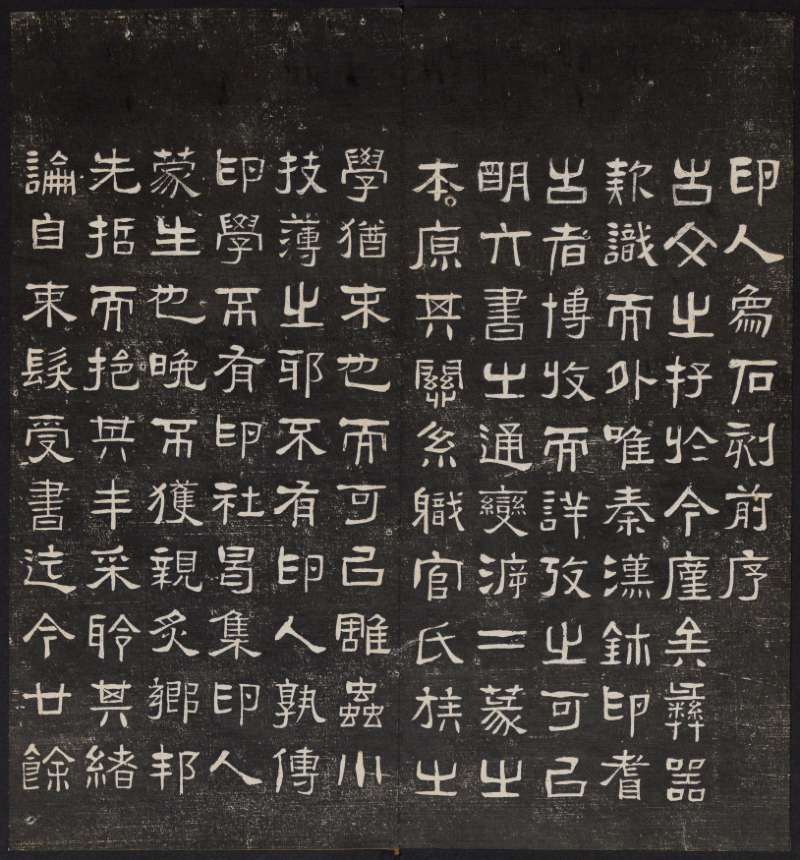 印人象石刻前序
古文之存於今廑矣彝器
款識而外唯秦漢鉨印耆
古者博收而詳攷之可㠯
明六書之通變游二篆之
本原其關系職官氏族之
學猶末也而可㠯雕蟲小
技薄之耶不有印人孰傳
印學不有印社曷集印人
蒙生也晚不獲親炙鄉邦
先哲而挹其丰采聆其緒
論自束髮受書迄今廿餘